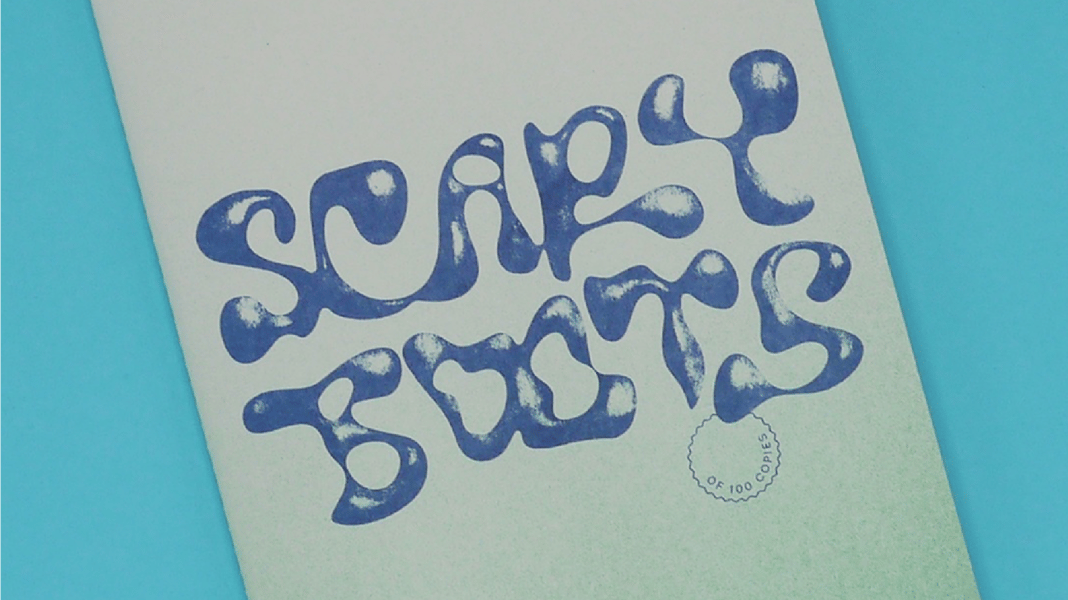 SCARY
BOOTS
OF 100 COPIES